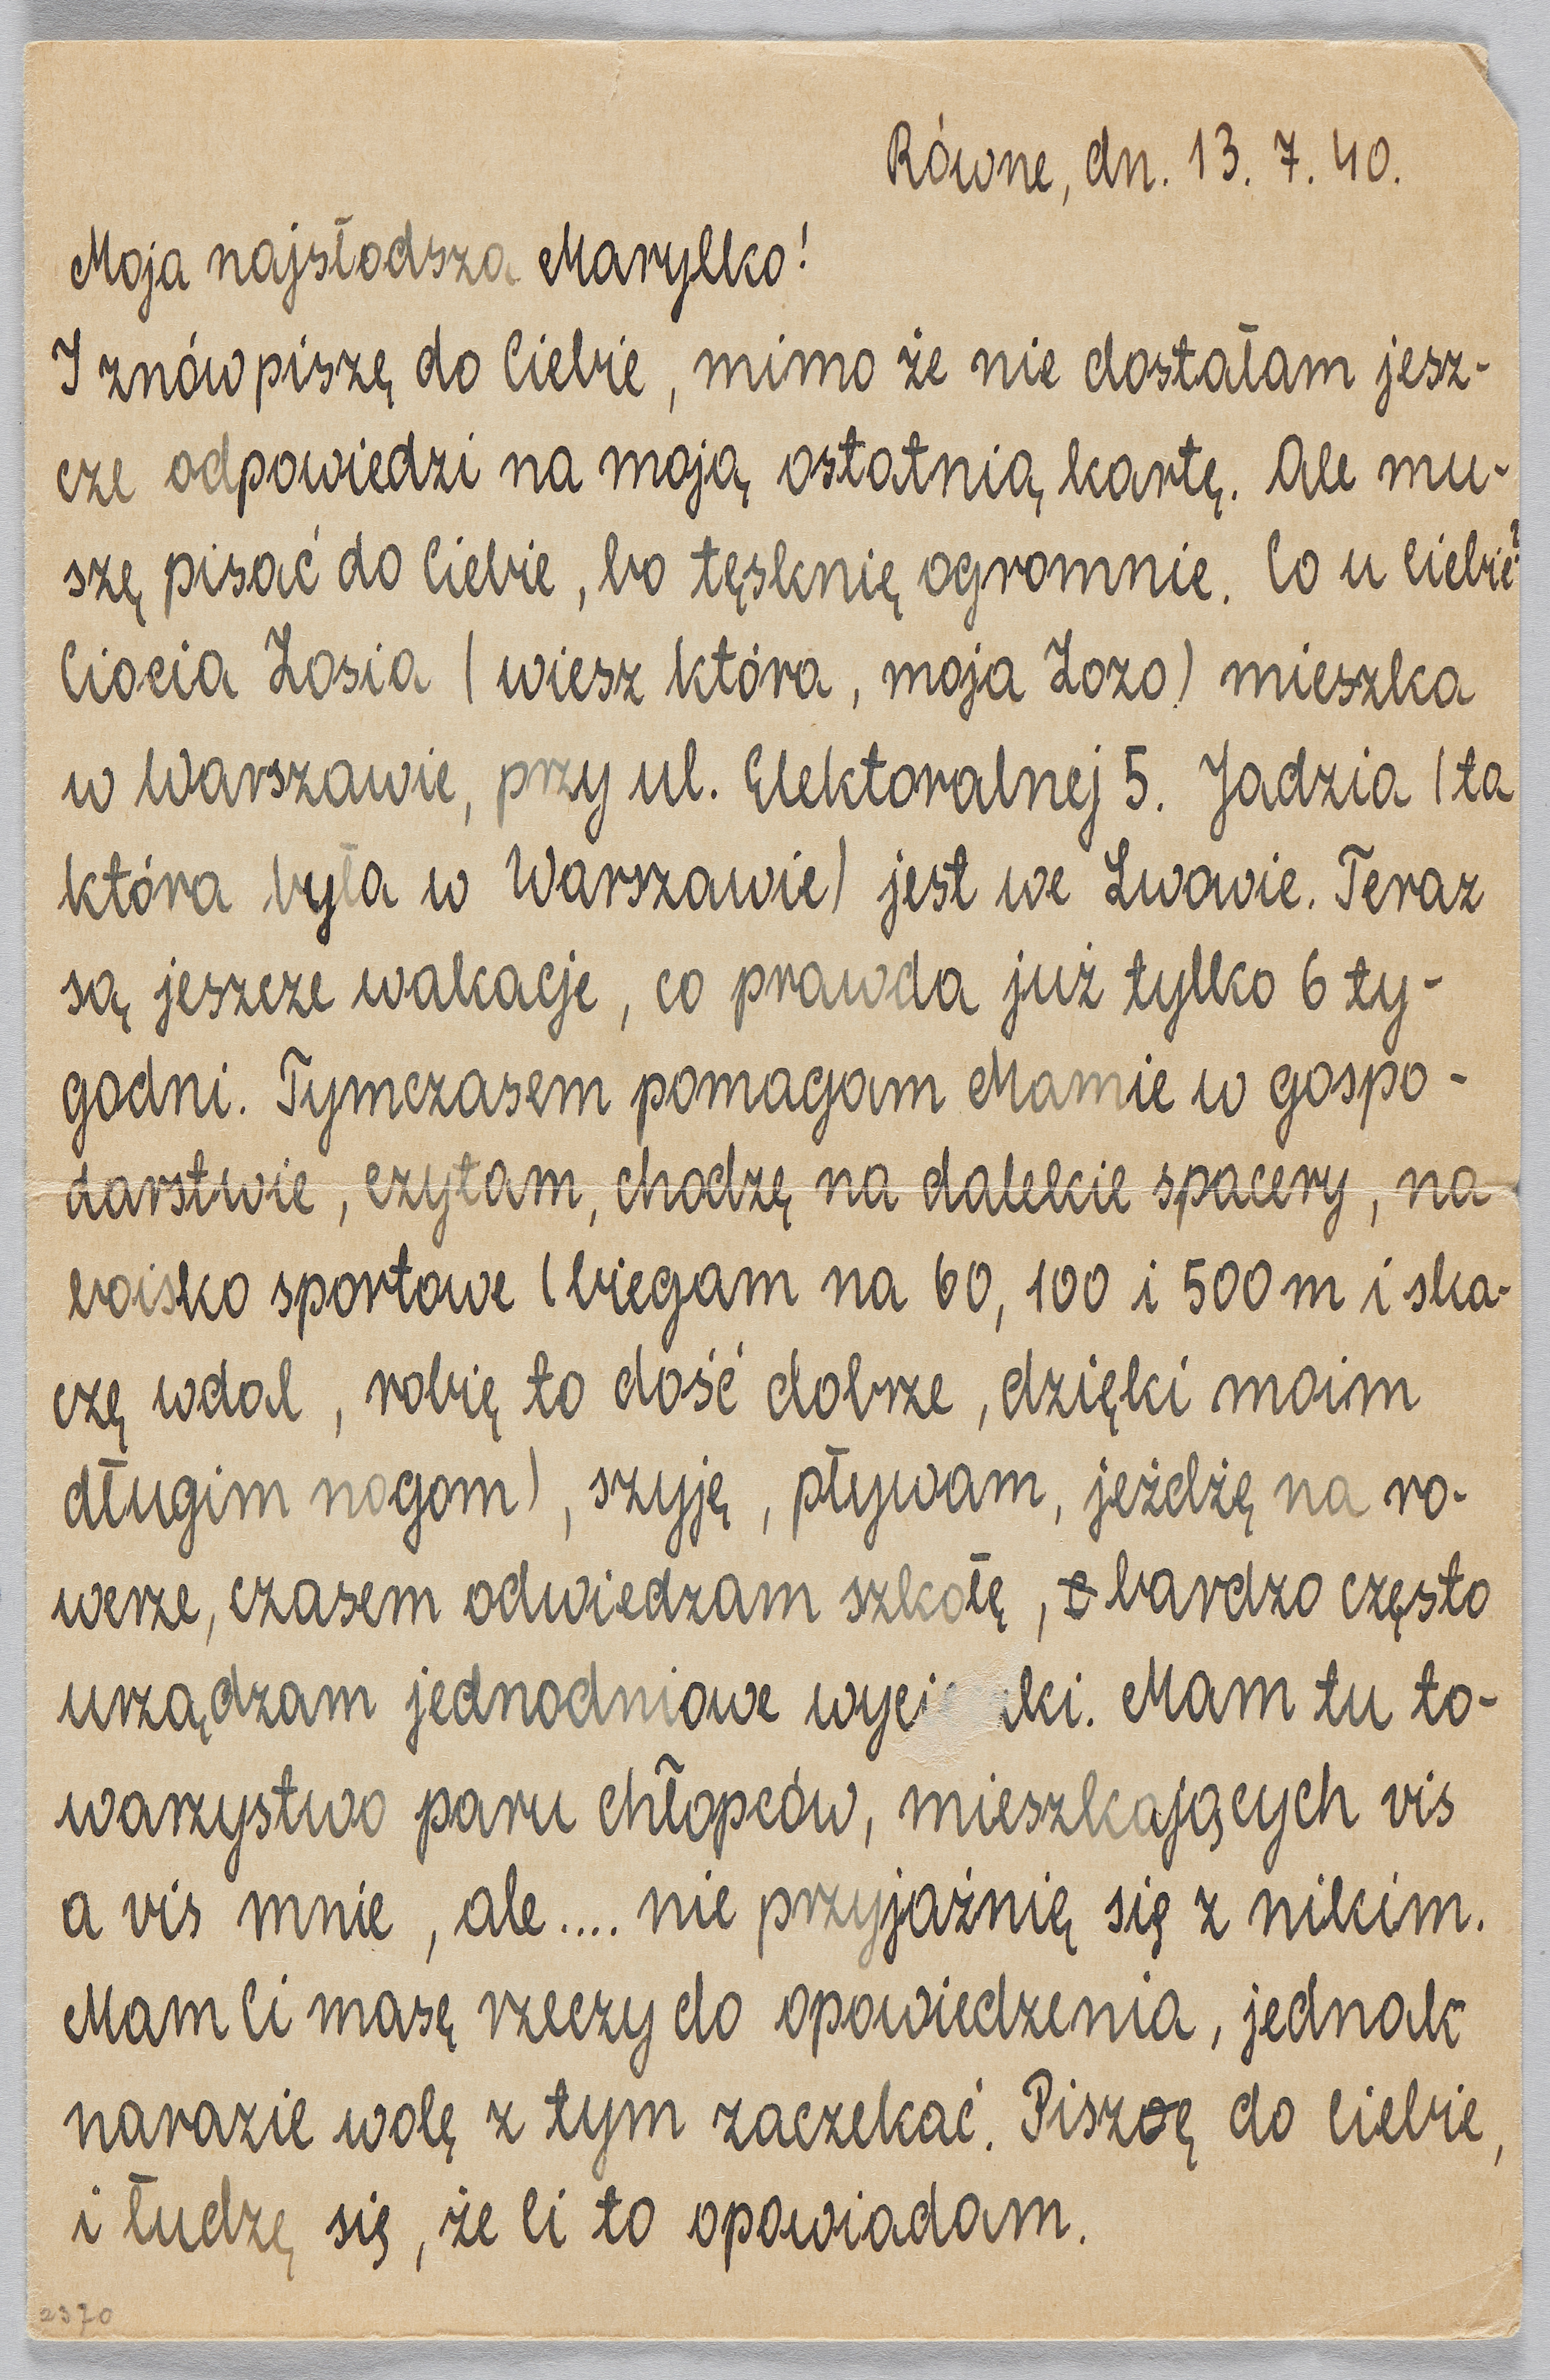 Równe, dn. 13. 7. 40.
Moja najsłodsza Marylko!
I znów piszę do Ciebie, mimo że nie dostałam jesz-
cze odpowiedzi na moją ostatnią kartę. Ale mu-
szę pisać do Ciebie, bo tęsknię ogromnie. Co u Ciebie?
Ciocia Zosia (wiesz która, moja Zozo) mieszka
w Warszawie, przy ul. Elektoralnej 5. Jadzia (ta
która była w Warszawie) jest we Lwowie. Teraz
są jeszcze wakacje, co prawda już tylko 6 ty-
godni. Tymczasem pomagam Mamie w gospo-
darstwie, czytam, chodzę na dalekie spacery, na
boisko sportowe (biegam na 60, 100 i 500 m i ska-
czę wdal, robię to dość dobrze, dzięki moim
długim nogom), szyję, pływam, jeżdżę na ro-
werze, czasem odwiedzam szkołę, bardzo często
urządzam jednodniowe . Mam tu to-
warzystwo paru chłopców, mieszkających vis
a vis mnie, ale.... nie przyjaźnię się z nikim.
Mam Ci masę rzeczy do opowiedzenia, jednak
narazie wolę z tym zaczekać. Piszę do Ciebie,
i łudzę się, że Ci to opowiadam.
2370